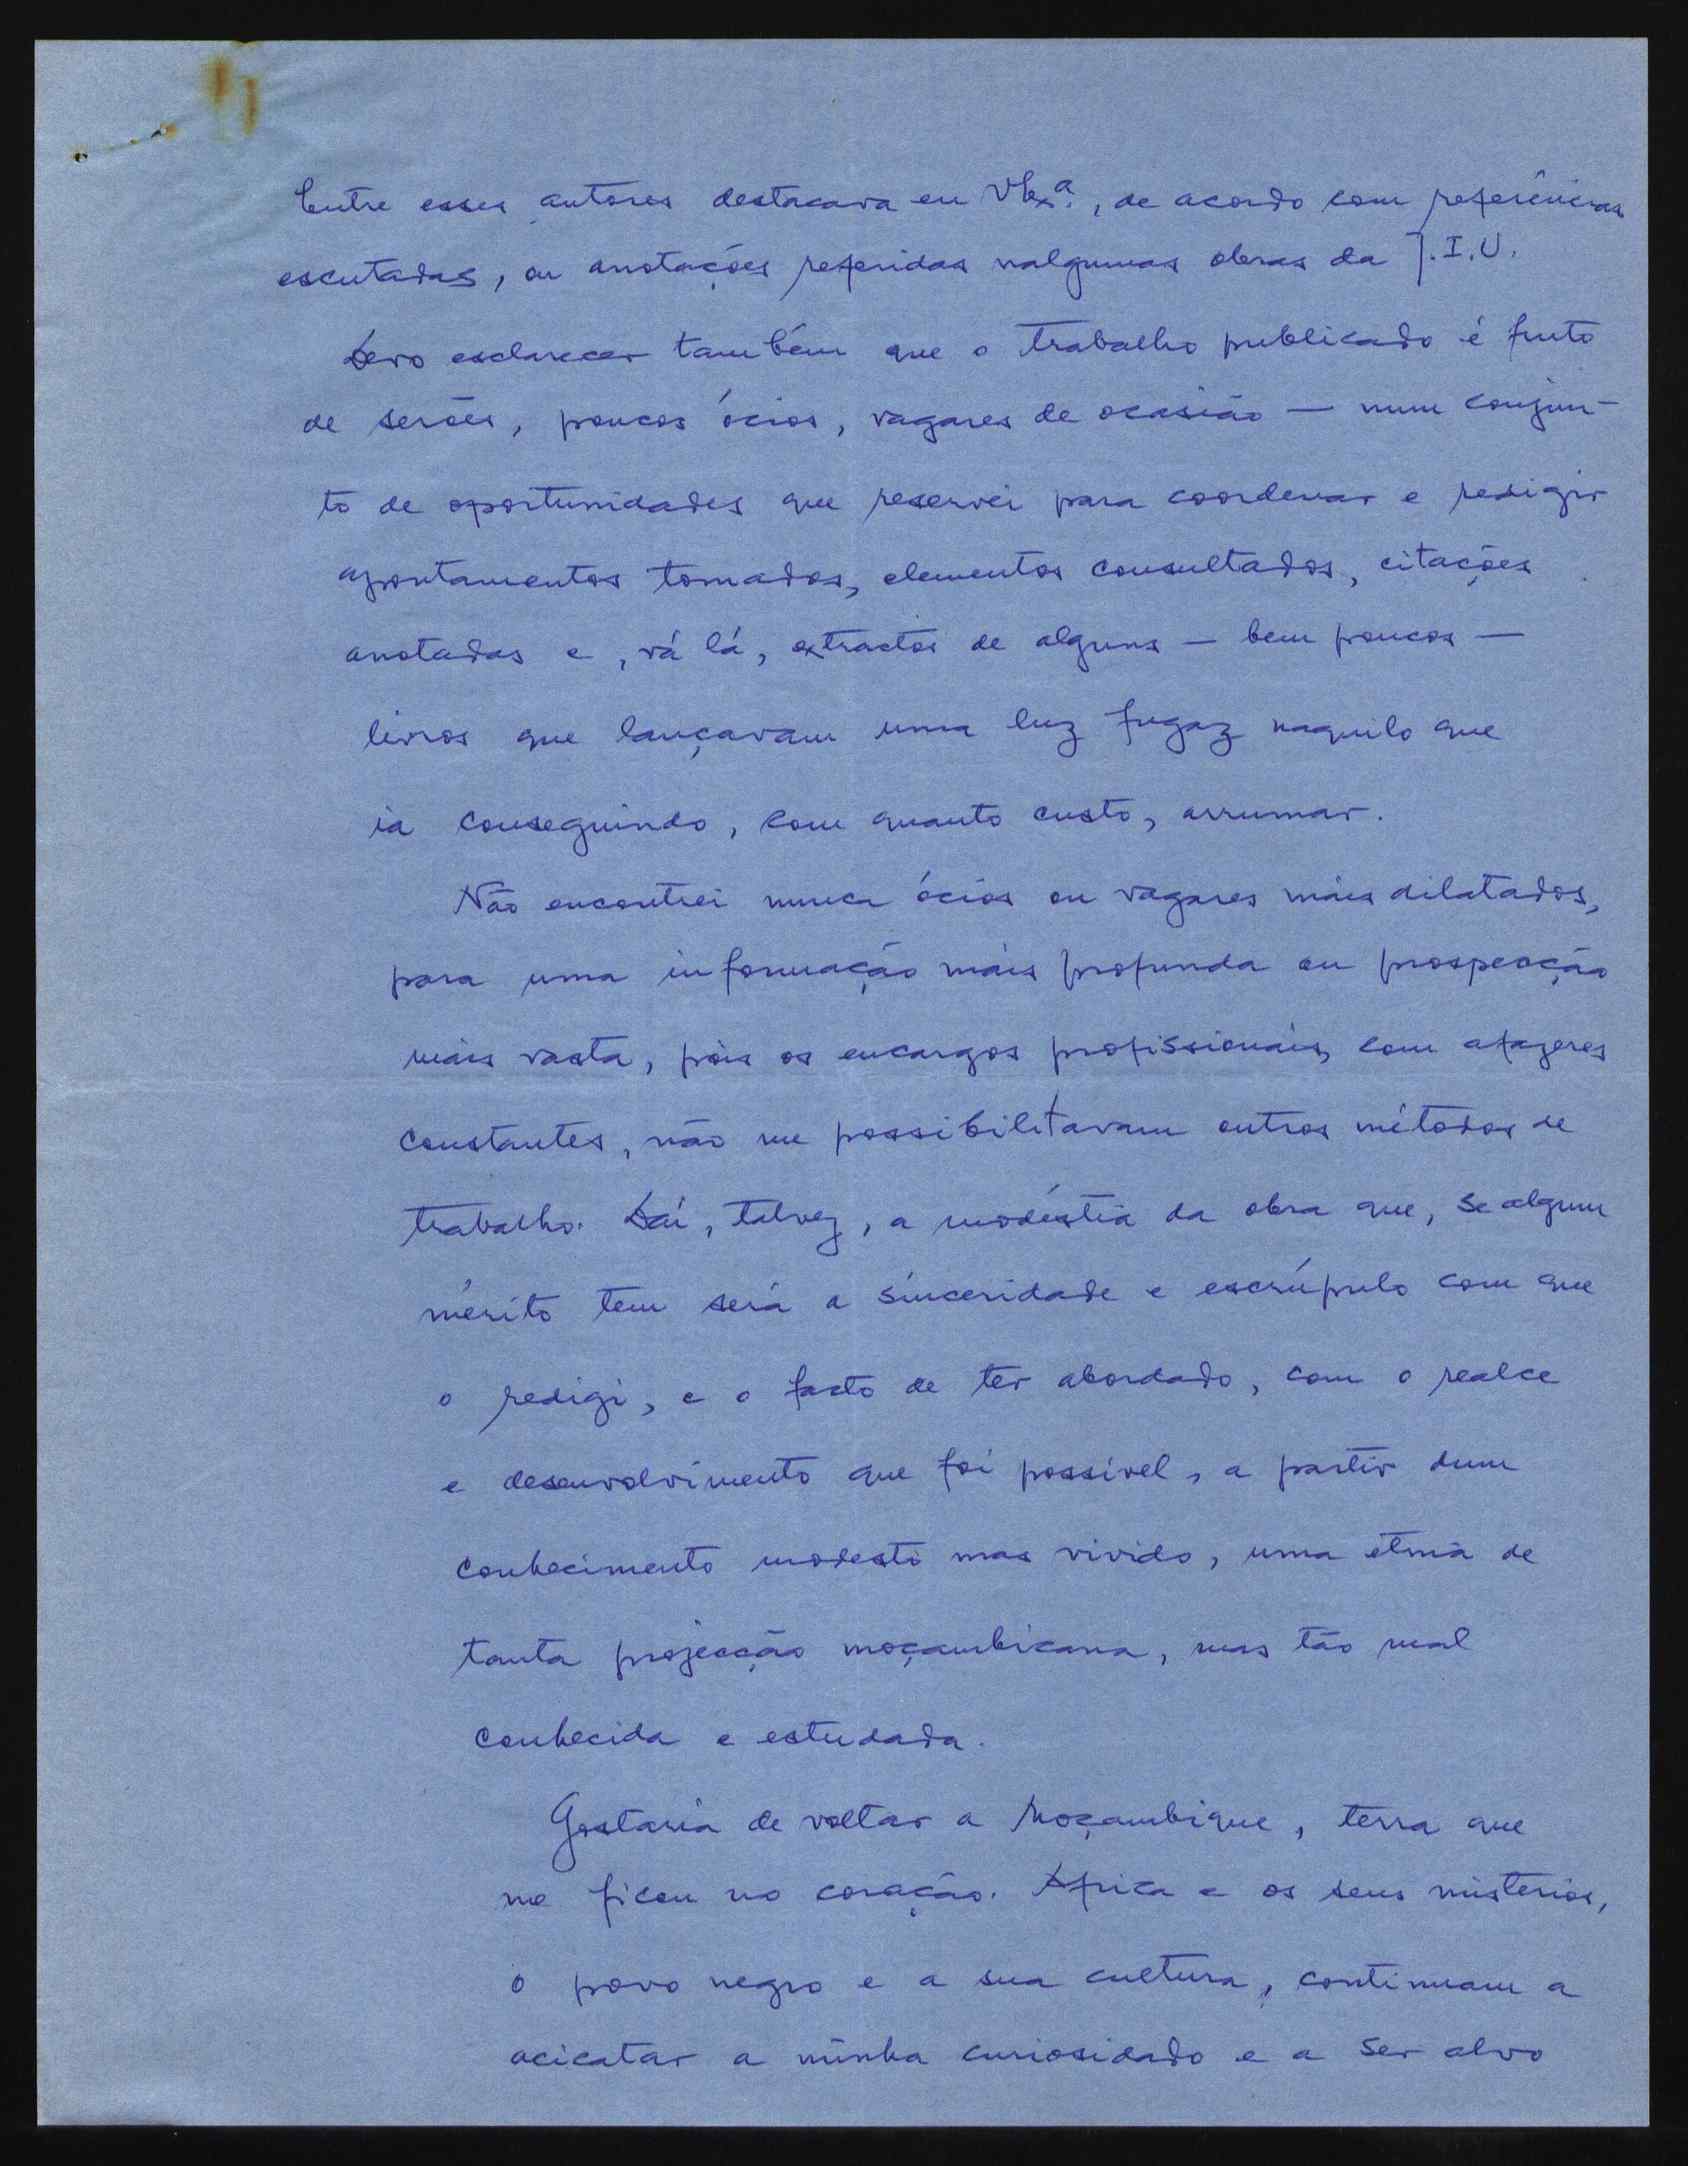 Entre esses autores destacava eu VExª., de acordo com referências
escutadas, ou anotações referidas nalgumas obras da J.I.U.
Devo esclarecer também que o trabalho publicado é fruto
de serões, poucos ócios, vagares de ocasião — num conjun-
to de oportunidades que reservei para coordenar e redigir
apontamentos tomados, elementos consultados, citações
anotadas e, vá lá, extractos de alguns — bem poucos —
livros que lançavam uma luz fugaz naquilo que
ia conseguindo, com quanto custo, arrumar.
Não encontrei nunca ócios ou vagares mais dilatados,
para uma informação mais profunda ou prospecção
mais vasta, pois os encargos profissionais, com afazeres
constantes, não me possibilitavam outros métodos de
trabalho. Daí, talvez, a modéstia da obra que, se algum
mérito tem será a sinceridade e escrúpulo com que
o redigi, e o facto de ter abordado, com o realce
e desenvolvimento que foi possível, a partir dum
conhecimento modesto mas vivido, uma etnia de
tanta projecção moçambicana, mas tão mal
conhecida e estudada.
Gostaria de voltar a Moçambique, terra que
me ficou no coração. África e os seus mistérios,
o povo negro e a sua cultura, continuam a
acicatar a minha curiosidade e a ser alvo